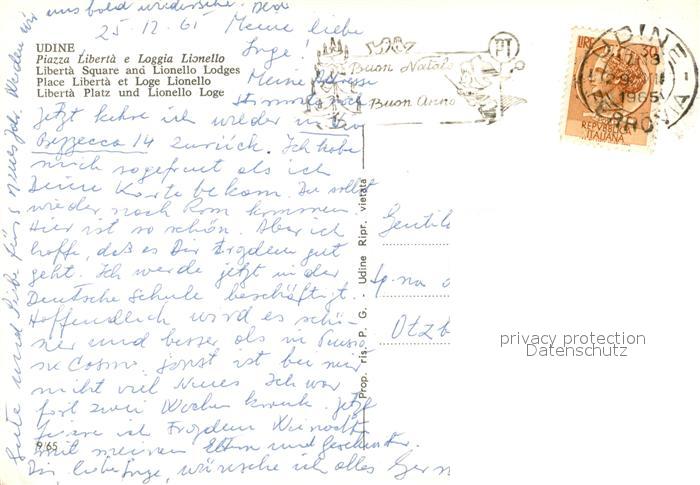 uns bald wiedersehe.
25.12.65 Meine liebe
Inge!
UDINE
Piazza Libertà e Loggia Lionello
Libertà Square and Lionello Lodges
Place Libertà et Loge Lionello
Libertà Platz und Lionello Loge
Meine Adresse
stimmt noch
Jetzt kehre ich wieder in
Bezzecca 14 zurück. Ich habe
mich so gefreut als ich
Deine Karte bekam. Du sollst
wieder nach Rom kommen.
Hier ist so schön. Aber ich
hoffe, daß es Dir trozdem gut
geht. Ich werde jetzt in der
Deutsche Schule beschäftigt.
Hoffendlich wird es schö-
ner und besser als in Pensio
ne Cosmo, sonst ist bei mir
nicht viel Neues. Ich war
fast zwei Wochen krank. Jetzt
feiere ich trozdem Weinachte
mit meinen Eltern und Geschwister.
Dir, liebe Inge, wünsche ich alles
Gute und Liebe für's Neues Jahr. Werden wir
9/65
Prop. ris. P. G. - Udine Ripr. vietata
Buon Natale
Buon Anno
PT
LIRE 30
REPUBBLICA
ITALIANA
UDINE
1965
FERROVIA
Gentil
Sp.na
Otzb
privacy protection
Datenschutz